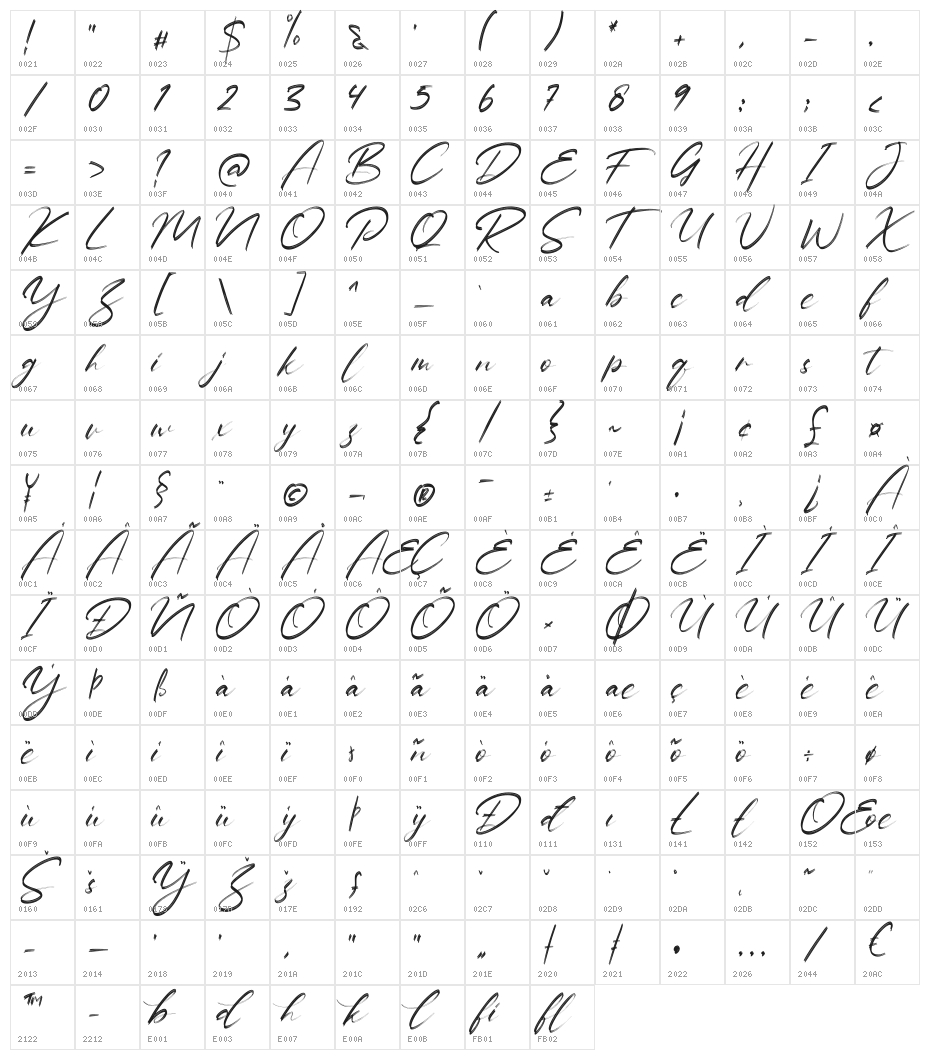 ! " # $ % & ' ( ) * + , - .
0021 0022 0023 0024 0025 0026 0027 0028 0029 002A 002B 002C 002D 002E
/ 0 1 2 3 4 5 6 7 8 9 : ; <
002F 0030 0031 0032 0033 0034 0035 0036 0037 0038 0039 003A 003B 003C
= > ? @ A B C D E F G H I J
003D 003E 003F 0040 0041 0042 0043 0044 0045 0046 0047 0048 0049 004A
K L M N O P Q R S T U V W X
004B 004C 004D 004E 004F 0050 0051 0052 0053 0054 0055 0056 0057 0058
Y Z [ \ ] ^ _ ` a b c d e f
0059 005A 005B 005C 005D 005E 005F 0060 0061 0062 0063 0064 0065 0066
g h i j k l m n o p q r s t
0067 0068 0069 006A 006B 006C 006D 006E 006F 0070 0071 0072 0073 0074
u v w x y z { | } ~ ¡ ¢ £ ¤
0075 0076 0077 0078 0079 007A 007B 007C 007D 007E 00A1 00A2 00A3 00A4
¥ ¦ § ¨ © ¬ ® ¯ ± ´ · ¸ ¿ À
00A5 00A6 00A7 00A8 00A9 00AC 00AE 00AF 00B1 00B4 00B7 00B8 00BF 00C0
Á Â Ã Ä Å Æ Ç È É Ê Ë Ì Í Î
00C1 00C2 00C3 00C4 00C5 00C6 00C7 00C8 00C9 00CA 00CB 00CC 00CD 00CE
Ï Ð Ñ Ò Ó Ô Õ Ö × Ø Ù Ú Û Ü
00CF 00D0 00D1 00D2 00D3 00D4 00D5 00D6 00D7 00D8 00D9 00DA 00DB 00DC
Ý Þ ß à á â ã ä å æ ç è é ê
00DD 00DE 00DF 00E0 00E1 00E2 00E3 00E4 00E5 00E6 00E7 00E8 00E9 00EA
ë ì í î ï ð ñ ò ó ô õ ö ÷ ø
00EB 00EC 00ED 00EE 00EF 00F0 00F1 00F2 00F3 00F4 00F5 00F6 00F7 00F8
ù ú û ü ý þ ÿ Đ đ ı Ł ł Œ œ
00F9 00FA 00FB 00FC 00FD 00FE 00FF 0110 0111 0131 0141 0142 0152 0153
Š š Ÿ Ž ž ƒ ˆ ˇ ˘ ˙ ˚ ˛ ˜ ˝
0160 0161 0178 017D 017E 0192 02C6 02C7 02D8 02D9 02DA 02DB 02DC 02DD
– — ‘ ’ ‚ “ ” „ † ‡ • … ⁄ €
2013 2014 2018 2019 201A 201C 201D 201E 2020 2021 2022 2026 2044 20AC
™ − b d h k l fi fl
2122 2212 E001 E003 E007 E00A E00B FB01 FB02